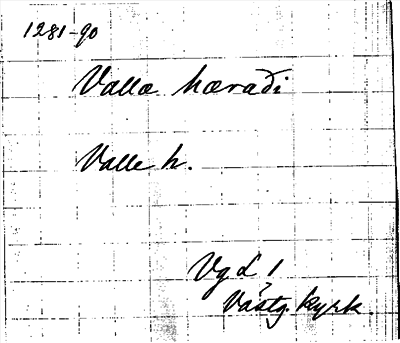 1281-90
Valla hæraði
Valle h.
Vg L 1
Västg. kyrk.